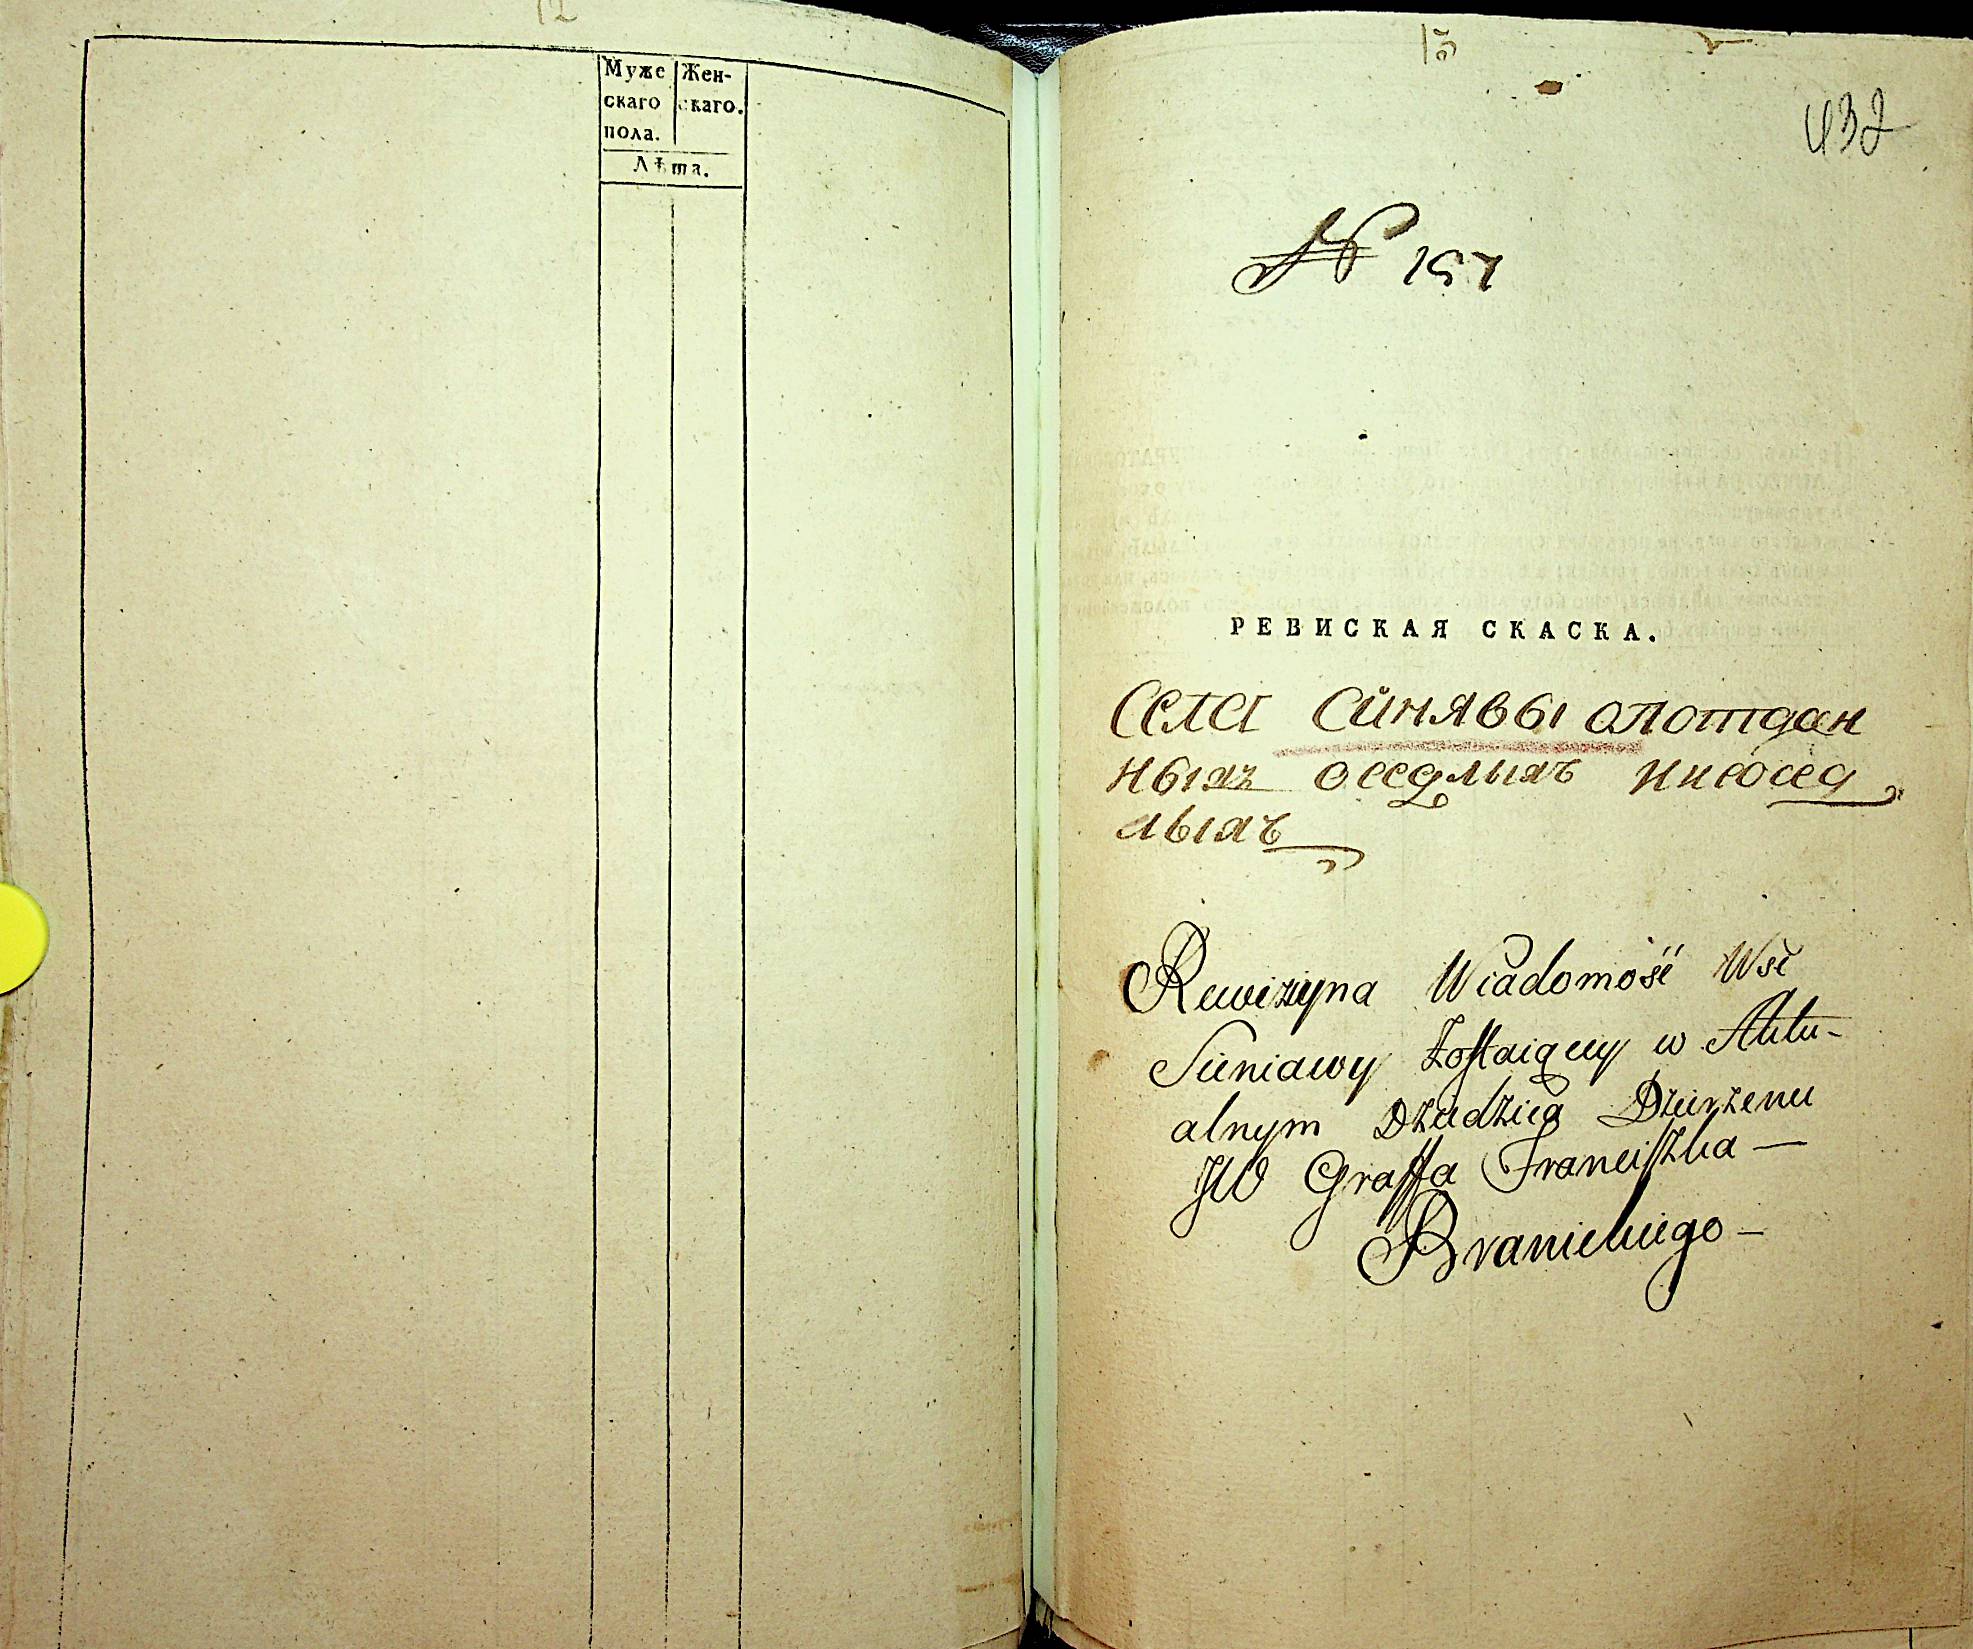 12
Муже
скаго
пола.
Жен-
скаго.
Лѣта.
432
№ 157
РЕВИСКАЯ СКАСКА.
Села Синявы опотдан
ныхъ оседлыхъ инеосед
лыхъ
Rewizyina Wiadomość Wsi
Sieniawy Zostaiącey w Aktu-
alnym Dziedzicą Dzierżeniu
JW Graffa Franciszka —
Branickiego —